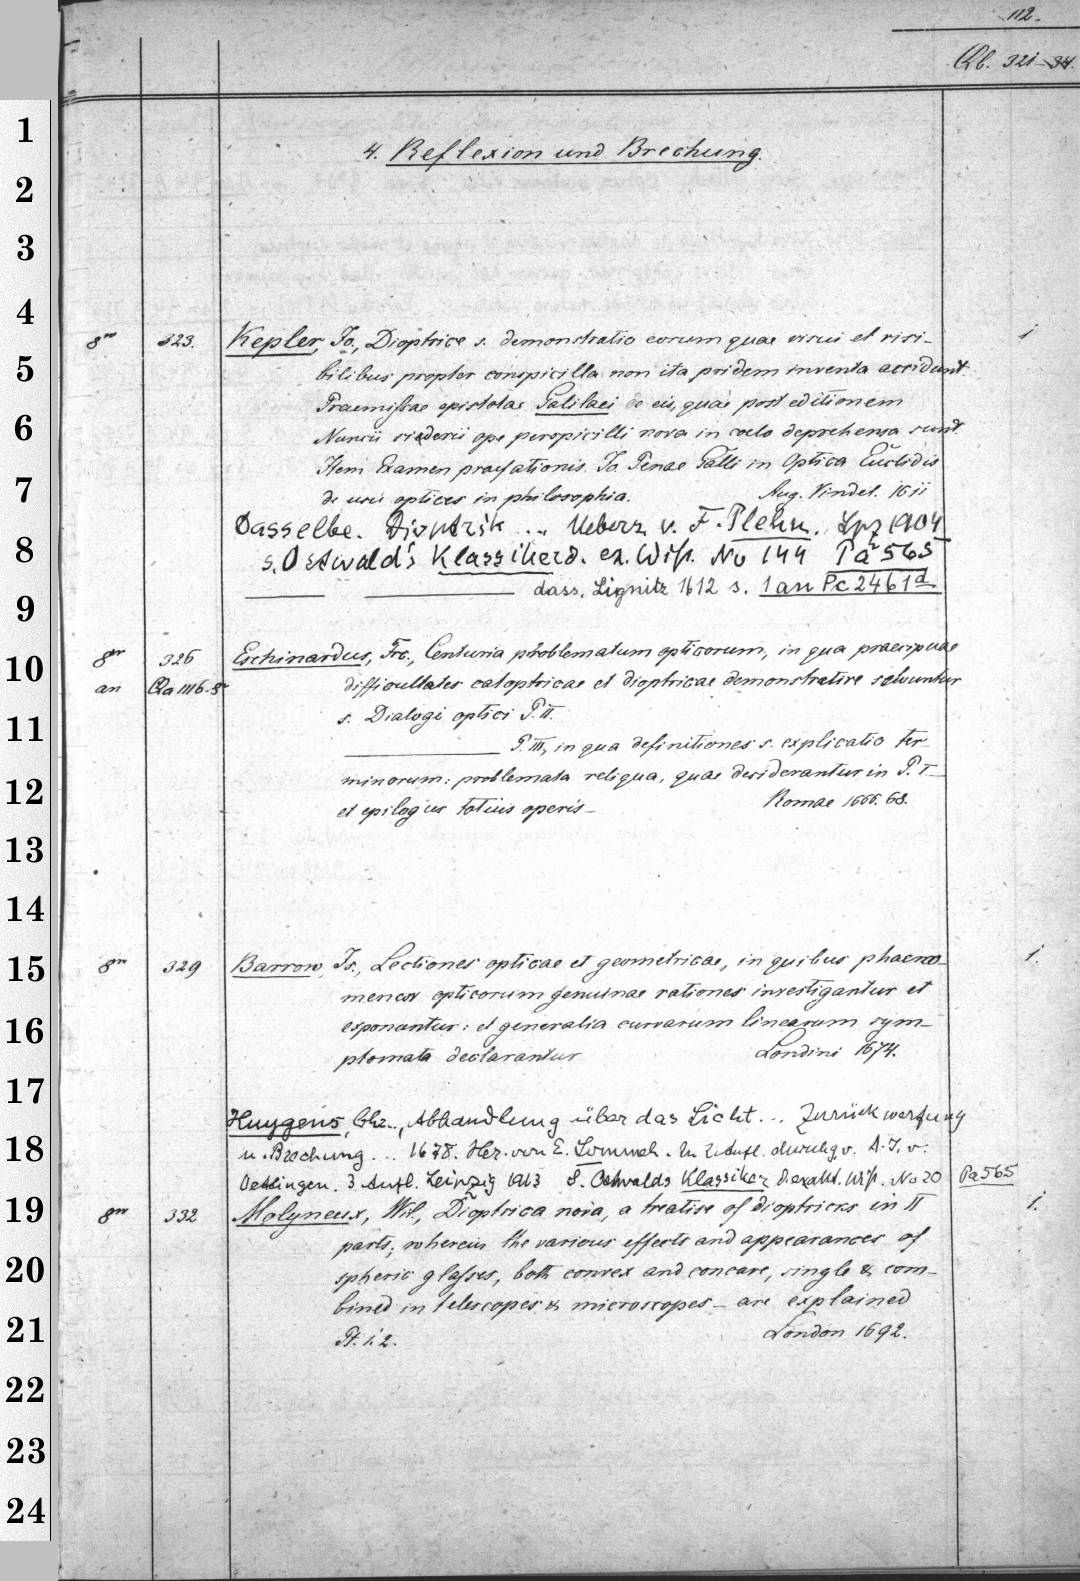 112.
Qb. 321-34.
4. Reflexion und Brechung.
8vo 323. Kepler, Jo., Dioptrice s. demonstratio eorum quae visui et visi- 1
bilibus propter conspicilla non ita pridem inventa accidunt
Praemissae epistolae Galilaei de eis, quae post editionem
Nuncii siderii ope perspicilli nova in coelo deprehensa sunt.
Item Examen praefationis Jo Penae Galli in Optica Euclidis
de usu optices in philosophia. Aug. Vindel. 1611
Dasselbe. Dioptrik ... Uebers. v. F. Plehn. Lpz 1904
s. Ostwald's Klassiker d. ex. Wiss. No 144 Pa 565
dass. Lignitz 1612 s. 1 an Pc 2461d
8vo 326 Eschinardus, Frc., Centuria problematum opticorum, in qua praecipuae
an Qa 1116.8 difficultates catoptricae et dioptricae demonstrative solvuntur
s. Dialogi optici P. II.
P. III, in qua definitiones s. explicatio ter-
minorum: problemata reliqua, quae desiderantur in P. I-
et epilogus totius operis- Romae 1666. 68.
8vo 329 Barrow, Is., Lectiones opticae et geometricae, in quibus phaeno- 1.
menωv opticorum genuinae rationes investigantur et
exponantur: et generalia curvarum linearum sym-
ptomata declarantur Londini 1674.
Huygens, Chr., Abhandlung über das Licht... Zurückwerfung
u. Brechung... 1678. Her. von E. Lommel. In 2. Aufl. durchg. v. A. J. v.
Oettingen. 3 Aufl. Leipzig 1913 S. Ostwalds Klassiker d. exakt. Wiss. No 20 Pa 565
8vo 332 Molyneux, Wil., Dioptrica nova, a treatise of dioptricks in II 1.
parts, wherein the various effects and appearances of
spheric glasses, both convex and concave, single & com-
bined in telescopes & microscopes - are explained
Pt. 1. 2. London 1692.
1
2
3
4
5
6
7
8
9
10
11
12
13
14
15
16
17
18
19
20
21
22
23
24